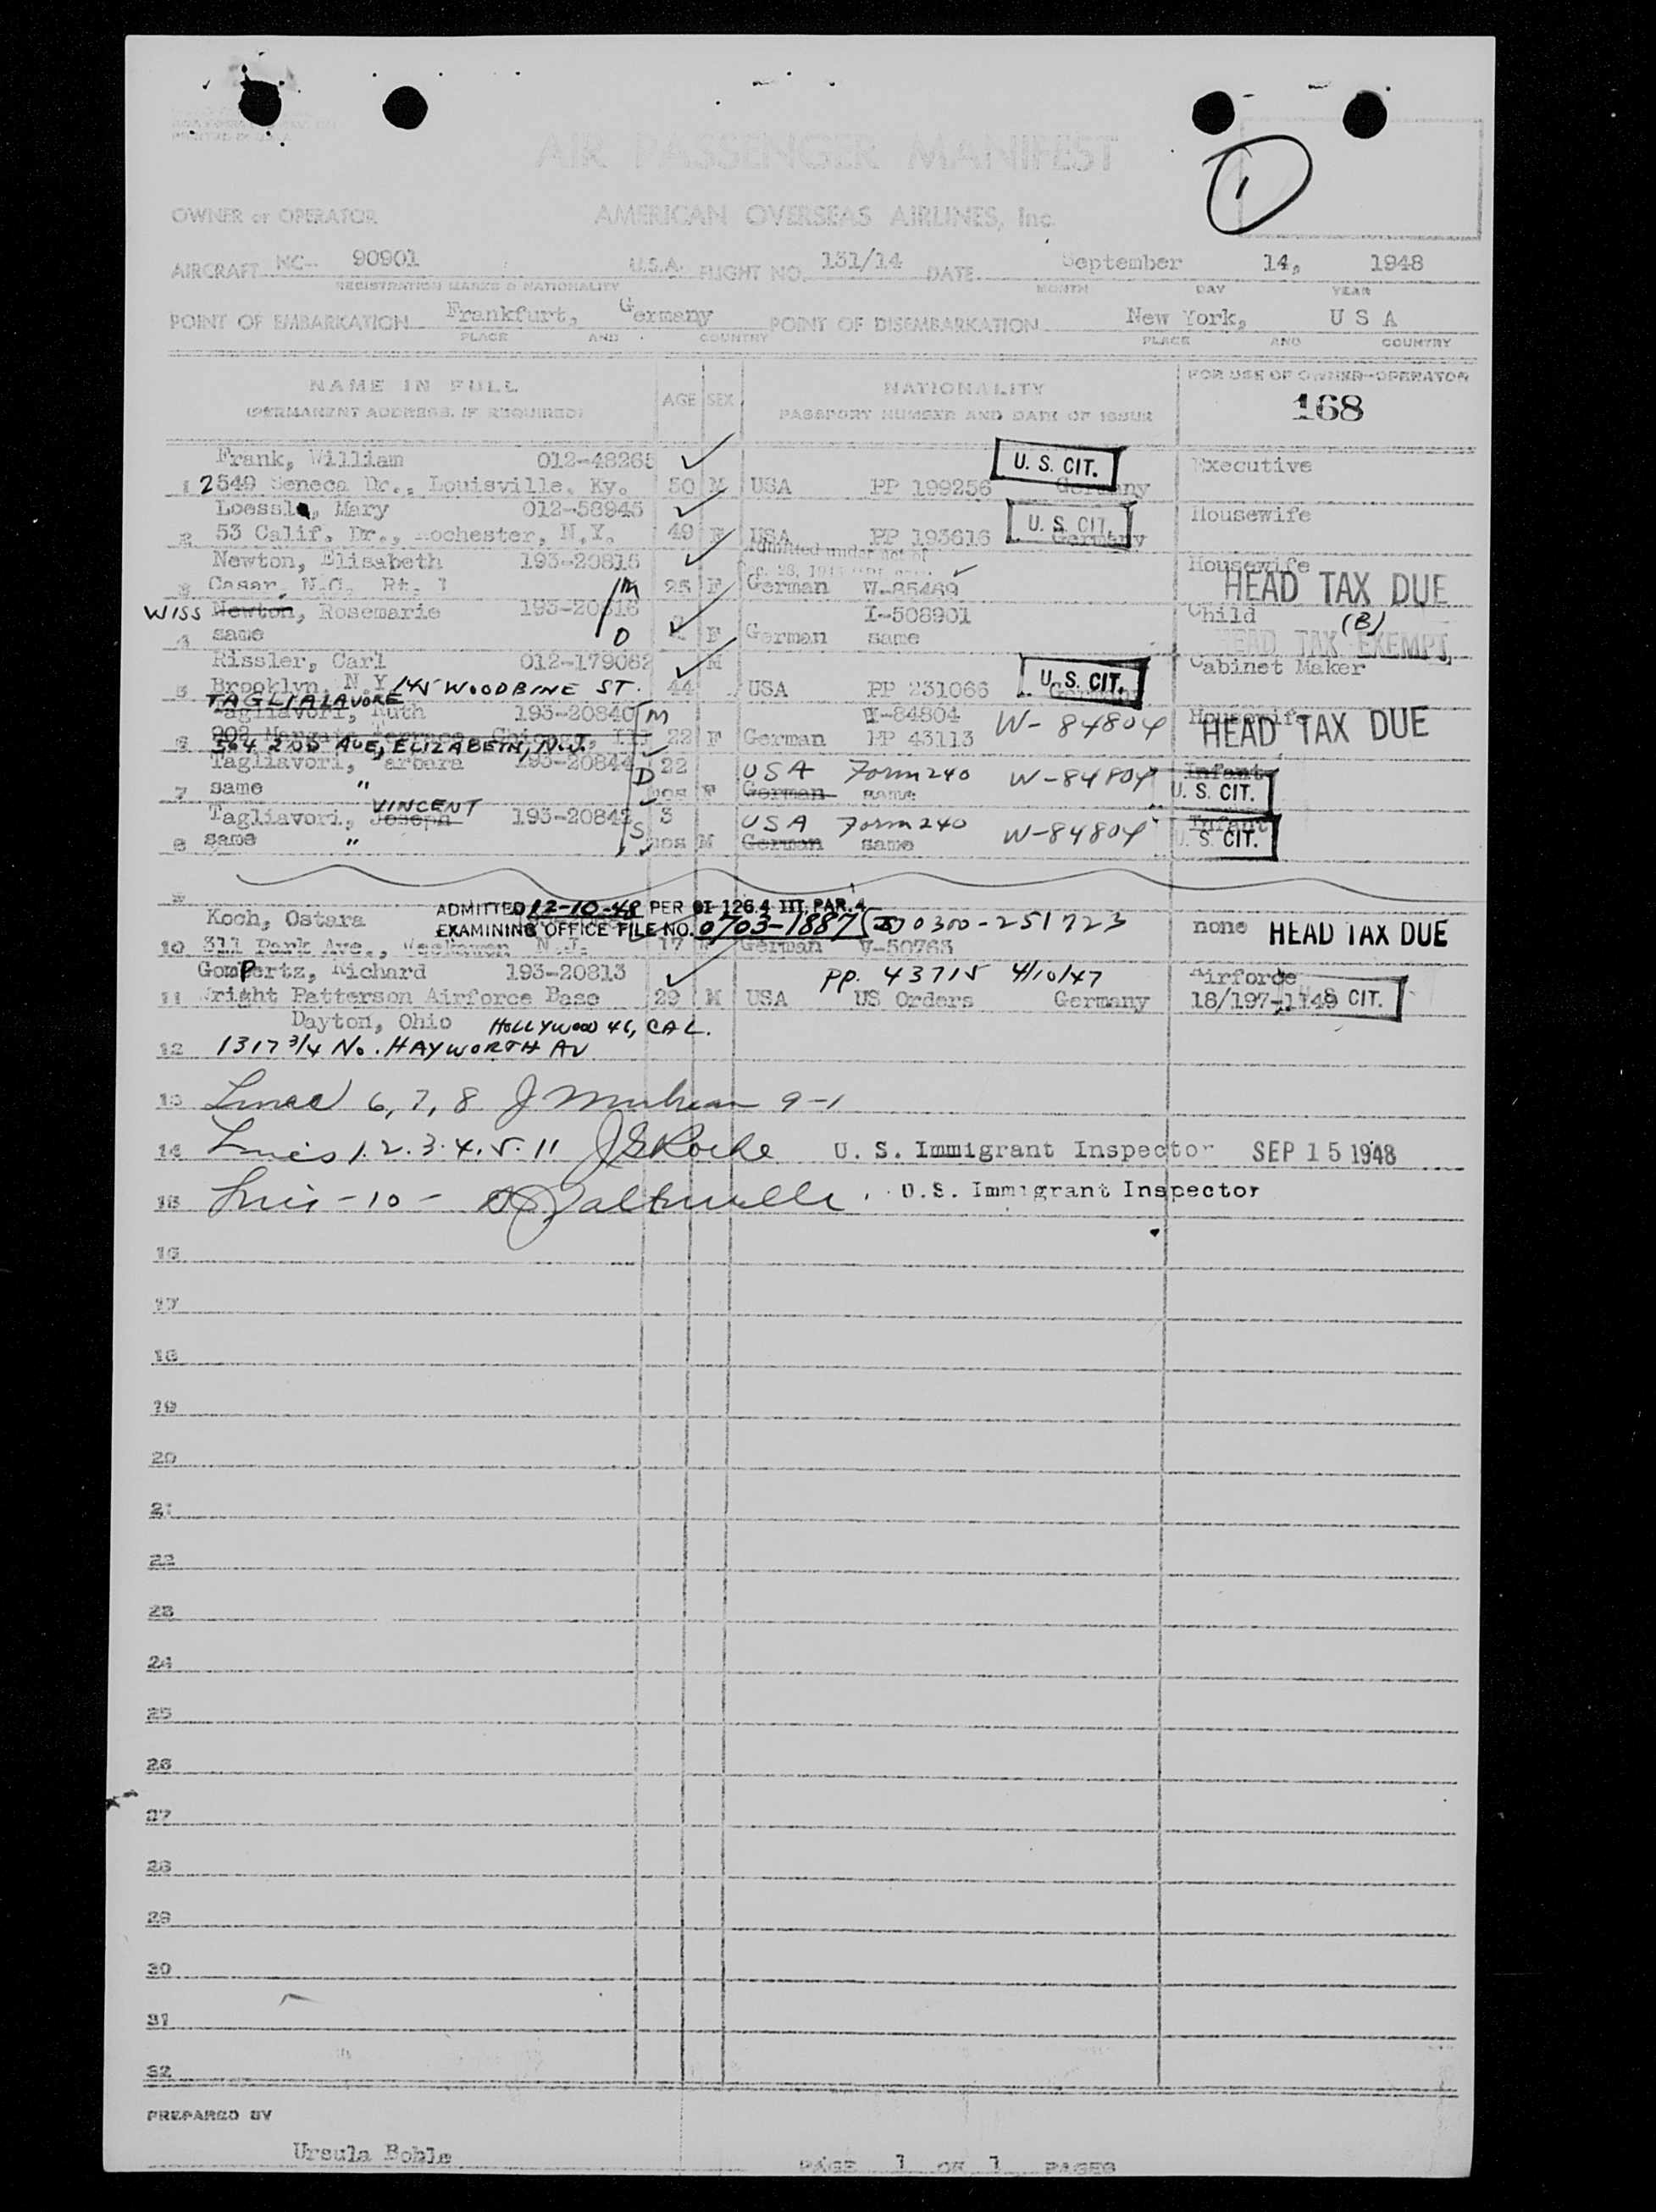 PRINTED IN U.S.A.
AIR PASSENGER MANIFEST
1
OWNER or OPERATOR AMERICAN OVERSEAS AIRLINES, Inc.
AIRCRAFT NC- 90901 U.S.A. FLIGHT NO. 131/14 DATE September 14, 1948
REGISTRATION MARKS & NATIONALITY MONTH DAY YEAR
POINT OF EMBARKATION Frankfurt, Germany POINT OF DISEMBARKATION New York, U S A
PLACE AND COUNTRY PLACE AND COUNTRY
NAME IN FULL AGE SEX NATIONALITY FOR USE OF OWNER-OPERATOR
(PERMANENT ADDRESS, IF REQUIRED) PASSPORT NUMBER AND DATE OF ISSUE 168
Frank, William 012-48265 U. S. CIT. Executive
1 2549 Seneca Dr., Louisville, Ky. 50 M USA PP 199256 Germany
Loessl, Mary 012-58945 U. S. CIT. Housewife
2 53 Calif. Dr., Rochester, N.Y. 49 F USA PP 193616 Germany
Newton, Elisabeth 193-20815 Admitted under act of Housewife
3 Casar, N.C. Rt. 1 M 25 F German V-85469 HEAD TAX DUE
WISS Newton, Rosemarie 193-20816 I-508901 Child (B)
4 same D F German same HEAD TAX EXEMPT
Rissler, Carl 012-179062 M U. S. CIT. Cabinet Maker
5 Brooklyn, N.Y. 145 WOODBINE ST. 44 USA PP 231066 Germany
TAGLIALAVORE
Tagliavori, Ruth 193-20840 M V-84804 W-84804 Housewife
6 902 Margate Terrace Chicago, Ill 22 F German PP 43113 HEAD TAX DUE
564 2ND AVE, ELIZABETH, N.J.
Tagliavori, Barbara 193-20844 D 22 USA Form 240 W-84804 Infant
7 same " mos F German same U. S. CIT.
VINCENT
Tagliavori, Joseph 193-20842 S 3 USA Form 240 W-84804 Infant
8 same " mos M German same U. S. CIT.
9
ADMITTED 12-10-48 PER OI 126.4 III, PAR. 4
Koch, Ostara EXAMINING OFFICE FILE NO. 0703-1887 0300-251723 none HEAD TAX DUE
10 311 Park Ave., N.J. 17 German V-50763
Gompertz, Richard 193-20813 PP. 43715 4/10/47 Airforce
11 Wright Patterson Airforce Base 29 M USA US Orders Germany 18/197-1148 U. S. CIT.
Dayton, Ohio HOLLYWOOD 46, CAL.
12 1317 3/4 No. HAYWORTH AV
13 Lines 6, 7, 8 9-1
14 Lines 1. 2. 3. 4. 5. 11 J G Roche U. S. Immigrant Inspector SEP 15 1948
15 Line - 10 - U.S. Immigrant Inspector
16
17
18
19
20
21
22
23
24
25
26
27
28
29
30
31
32
PREPARED BY
Ursula Bohle PAGE 1 OF 1 PAGES